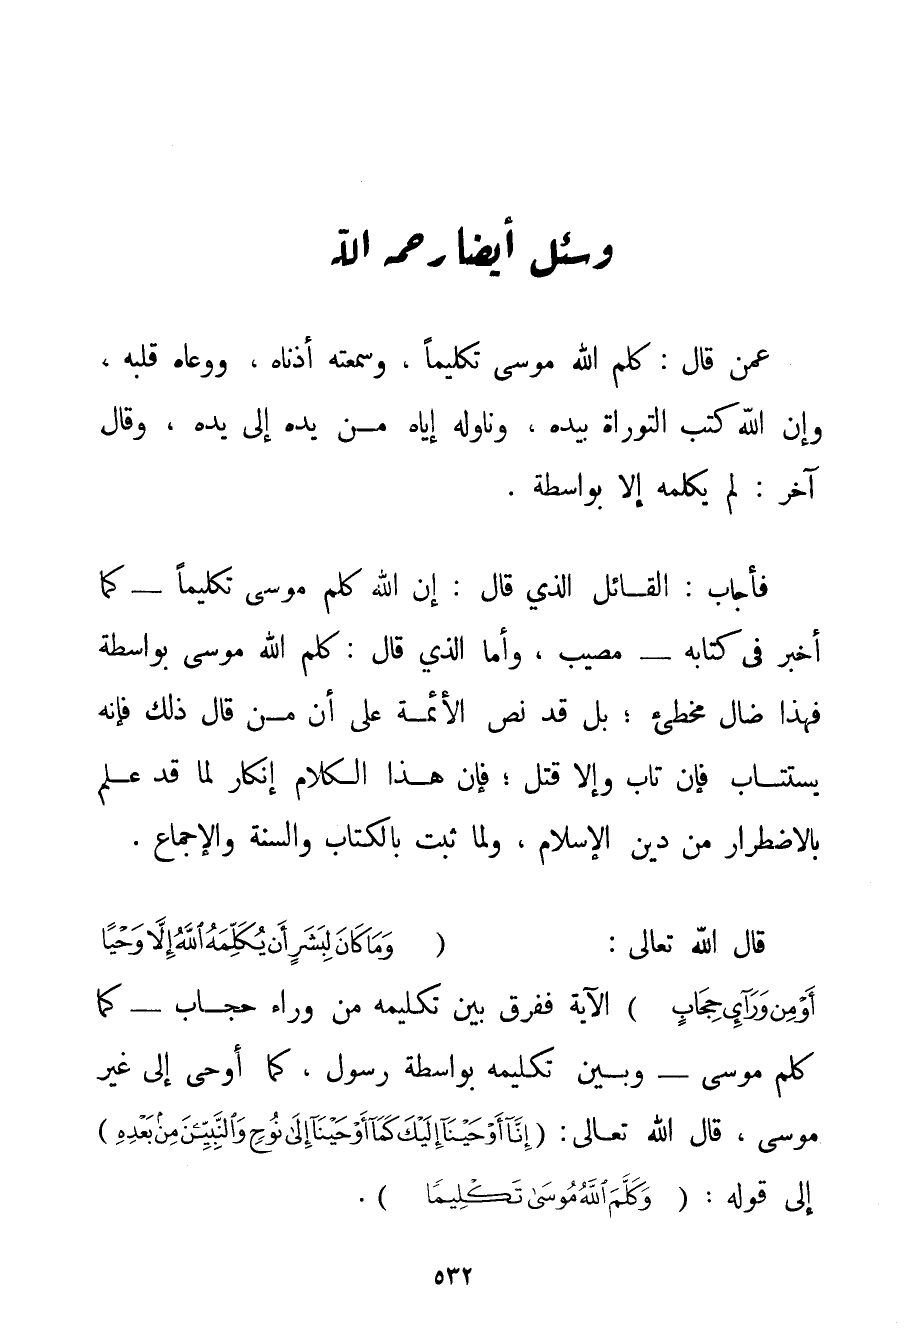 وسئل أيضا رحمه الله
عمن قال : كلم الله موسى تكليماً ، وسمعته أذناه ، ووعاه قلبه ،
وإن الله كتب التوراة بيده ، وناوله إياه مـن يده إلى يده ، وقال
آخر : لم يكلمه إلا بواسطة .
فأجاب : القـائل الذي قال : إن الله كلم موسى تكليماً — كما
أخبر فى كتابه — مصيب ، وأما الذي قال : كلم الله موسى بواسطة
فهذا ضال مخطئ ؛ بل قد نص الأئمـة على أن مـن قال ذلك فإنه
يستتـاب فإن تاب وإلا قتل ؛ فإن هـذا الـكلام إنكار لما قد عـلم
بالاضطرار من دين الإسلام ، ولما ثبت بالكتاب والسنة والإجماع .
قال الله تعالى : ( وَمَا كَانَ لِبَشَرٍ أَن يُكَلِّمَهُ ٱللَّهُ إِلَّا وَحْيًا
أَوْ مِن وَرَآيِٕ حِجَابٍ ) الآية ففرق بين تكليمه من وراء حجـاب — كما
كلم موسى — وبـين تكليمه بواسطة رسول ، كما أوحى إلى غير
موسى ، قال الله تعـالى : ( إِنَّآ أَوْحَيْنَآ إِلَيْكَ كَمَآ أَوْحَيْنَآ إِلَىٰ نُوحٍ وَٱلنَّبِيِّـۧنَ مِنۢ بَعْدِهِ )
إلى قوله : ( وَكَلَّمَ ٱللَّهُ مُوسَىٰ تَكْلِيمًا ) .
٥٣٢